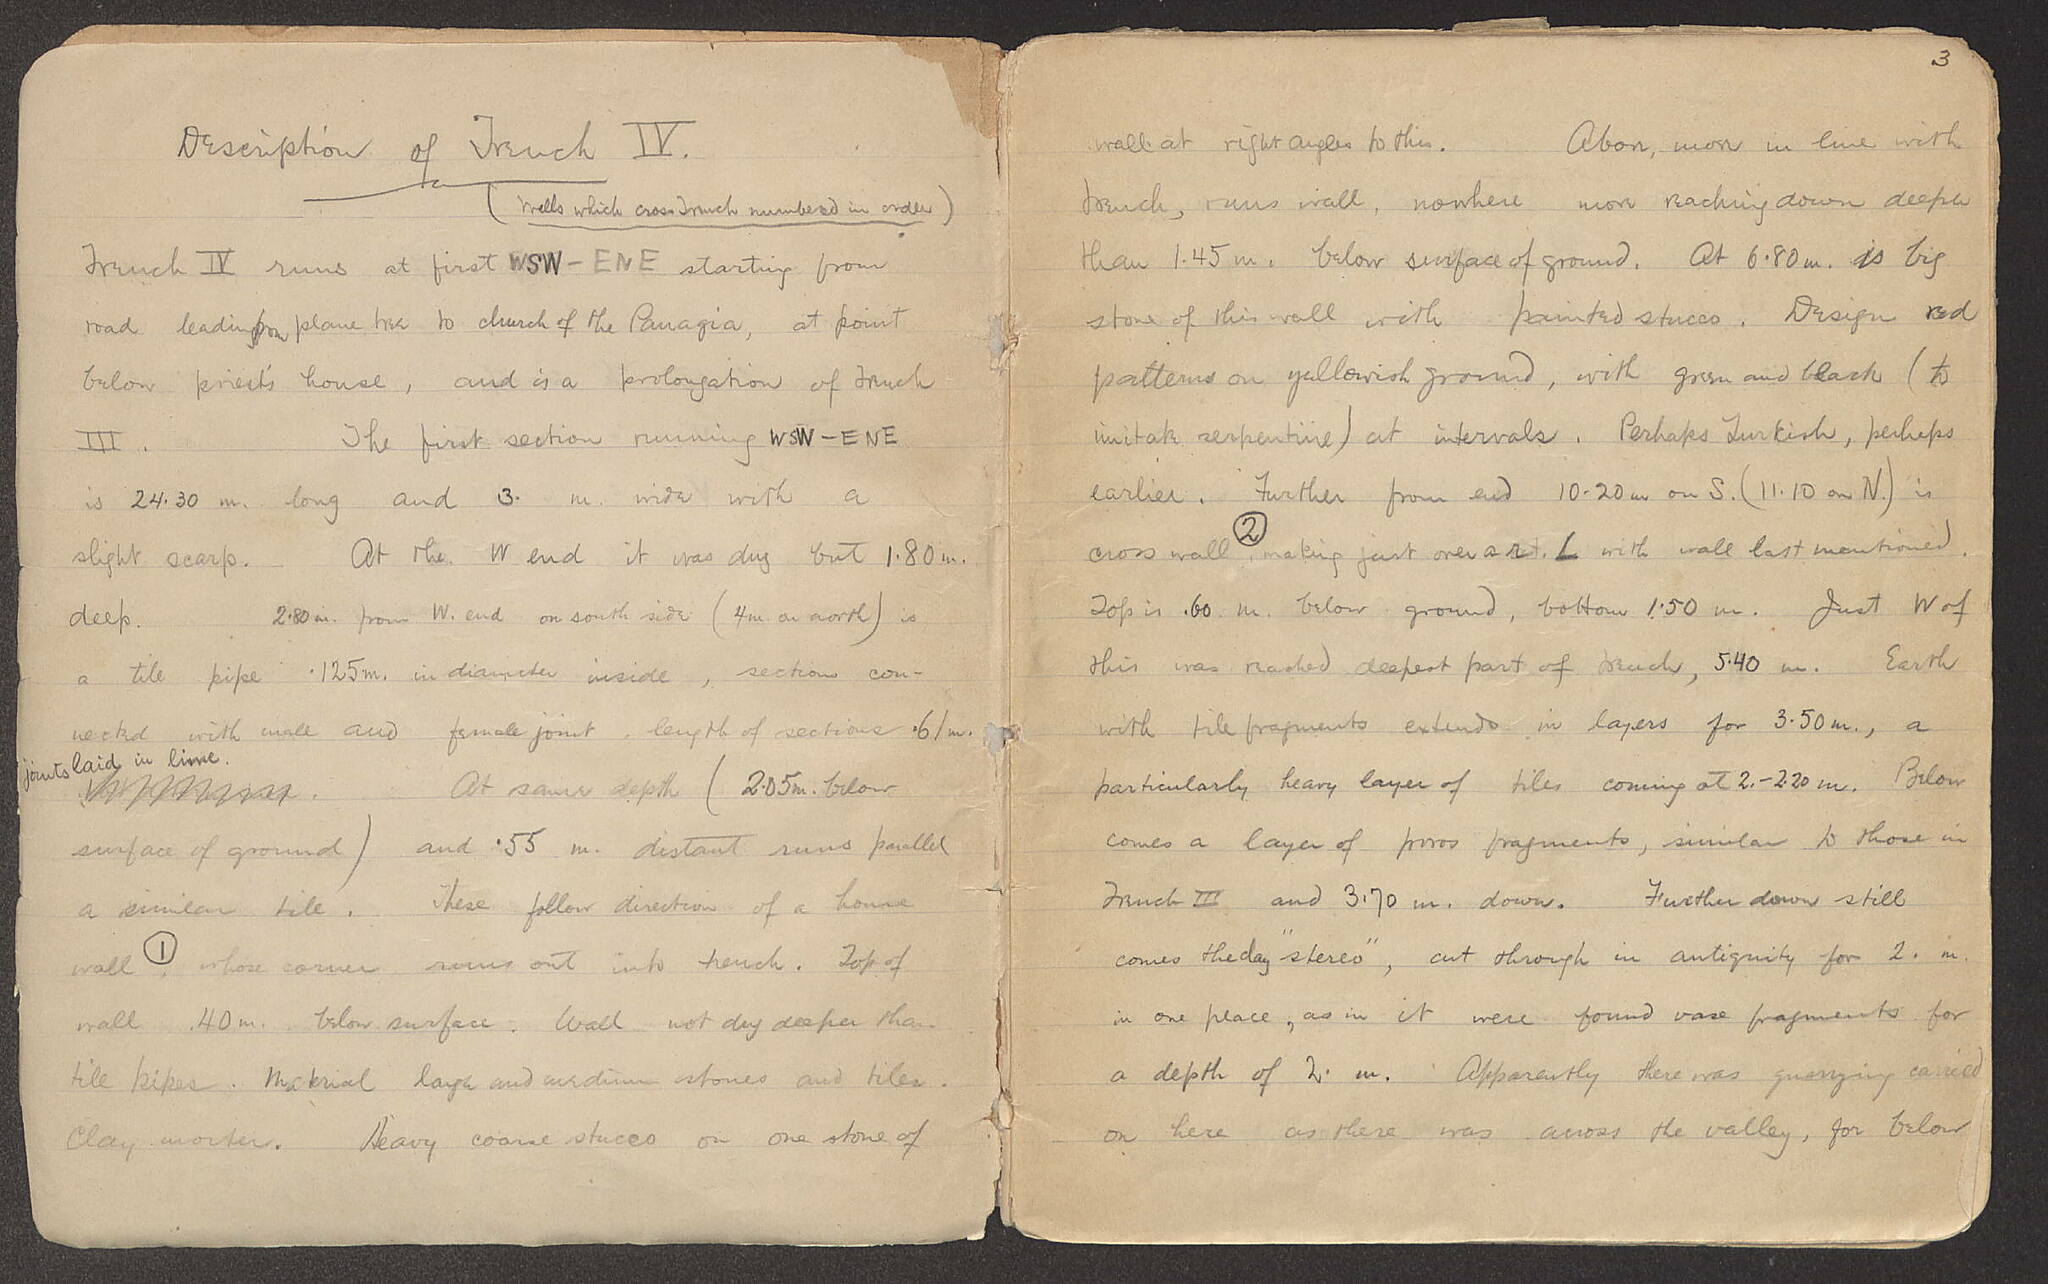 Description of Trench IV.
(Walls which cross trench numbered in order)
Trench IV runs at first WSW-ENE starting from
road leading from plane tree to church of the Panagia, at point
below priest's house, and is a prolongation of trench
III. The first section running WSW-ENE
is 24.30 m. long and 3. m. wide with a
slight scarp. At the W end it was dug but 1.80 m.
deep. 2.80 m. from W. end on south side (4m. on north) is
a tile pipe .125 m. in diameter inside, section con-
nected with male and female joint. length of sections .61 m.
joints laid in lime.
At same depth (2.05 m. below
surface of ground) and .55 m. distant runs parallel
a similar tile. These follow direction of a house
wall ①, whose corner runs out into trench. Top of
wall .40 m. below surface. Wall not dug deeper than
tile pipes. Material large and medium stones and tiles.
Clay mortar. Heavy coarse stucco on one stone of
3
wall at right angles to this. Above, more in line with
trench, runs wall, nowhere more reaching down deeper
than 1.45 m. below surface of ground. At 6.80 m. is big
stone of this wall with painted stucco. Design red
patterns on yellowish ground, with green and black (to
imitate serpentine) at intervals. Perhaps Turkish, perhaps
earlier. Further from end 10.20 m on S. (11.10 on N.) is
cross wall ②, making just over a rt. L with wall last mentioned.
Top is .60 m. below ground, bottom 1.50 m. Just W of
this was reached deepest part of trench, 5.40 m. Earth
with tile fragments extends in layers for 3.50 m., a
particularly heavy layer of tiles coming at 2.-2.20 m. Below
comes a layer of poros fragments, similar to those in
Trench III and 3.70 m. down. Further down still
comes the clay "stereo", cut through in antiquity for 2. m.
in one place, as in it were found vase fragments for
a depth of 2. m. Apparently there was quarrying carried
on here as there was across the valley, for below